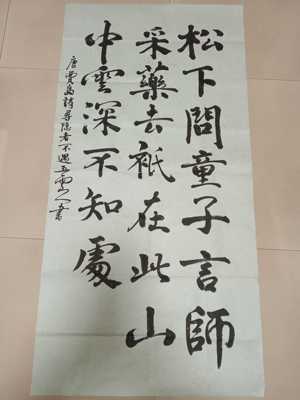 松下問童子言師
采藥去祇在此山
中雲深不知處
唐賈島詩尋隐者不遇五雲山人書